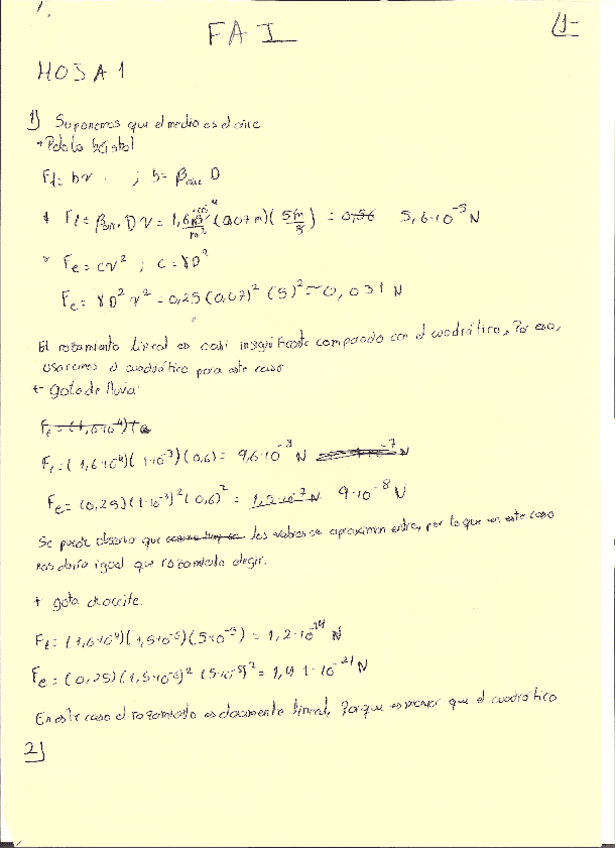 1.
FA I
(1-
HOJA 1
1) Suponemos que el medio es el aire
* Pelota béisbol
Fl = bv ; b = βaire D
* Fl = βair. D v = 1,6·10^-4 (0,07m) (5 m/s) = 0,56 5,6·10^-5 N
* Fc = cv² ; c = γD²
Fc = γD² v² = 0,25 (0,07)² (5)² = 0,031 N
El rozamiento lineal es casi insignificante comparado con el cuadrático. Por eso,
usaremos el cuadrático para este caso
+ Gota de lluvia:
Fl = (1,6·10^-4)(
Fl = (1,6·10^-4)(1·10^-3)(0,6) = 9,6·10^-8 N
Fc = (0,25)(1·10^-3)²(0,6)² = 1,5·10^-7 N 9·10^-8 N
Se puede observar que los valores se aproximan entre, por lo que en este caso
nos daría igual que rozamiento elegir.
+ gota de aceite.
Fl = (1,6·10^-4)(1,5·10^-6)(5·10^-5) = 1,2·10^-14 N
Fc = (0,25)(1,5·10^-6)²(5·10^-5)² = 1,41·10^-21 N
En este caso el rozamiento es claramente lineal, Porque es mayor que el cuadrático
2)